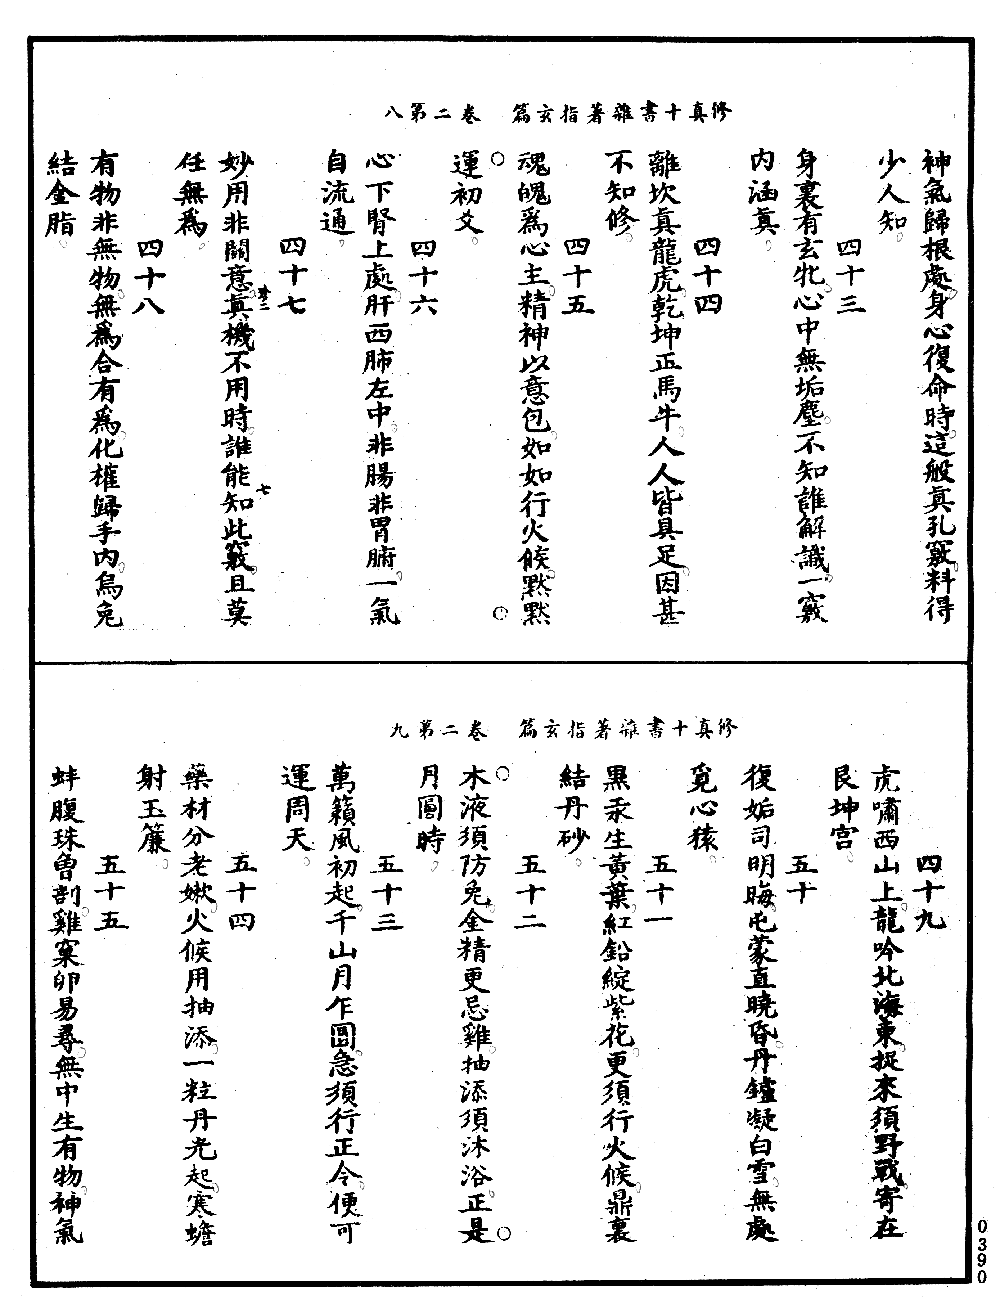 修真十書雜著指玄篇　卷二第八
神氣歸根處。身心復命時。這般真孔竅。料得
少人知。
四十三
身裏有玄牝。心中無垢塵。不知誰解識。一竅
內涵真。
四十四
離坎真龍虎。乾坤正馬牛。人人皆具足。因甚
不知修。
四十五
魂魄爲心主。精神以意包。如如行火候。默默
運初爻。
四十六
心下腎上處。肝西肺左中。非腸非胃腑。一氣
自流通。
四十七
妙用非關意。真機不用時。誰能知此竅。且莫
任無爲。
四十八
有物非無物。無爲合有爲。化權歸手內。烏兔
結金脂。
修真十書雜著指玄篇　卷二第九
四十九
虎嘯西山上。龍吟北海東。捉來須野戰。寄在
艮坤宮。
五十
復姤司明晦。屯蒙直曉昏。丹鑪凝白雪。無處
覓心猿。
五十一
黑汞生黃葉。紅鉛綻紫花。更須行火候。鼎裏
結丹砂。
五十二
木液須防兔。金精更忌雞。抽添須沐浴。正是
月圓時。
五十三
萬籟風初起。千山月乍圓。急須行正令。便可
運周天。
五十四
藥材分老嫰。火候用抽添。一粒丹光起。寒蟾
射玉簾。
五十五
蚌腹珠曾剖。雞窠卵易尋。無中生有物。神氣
0390